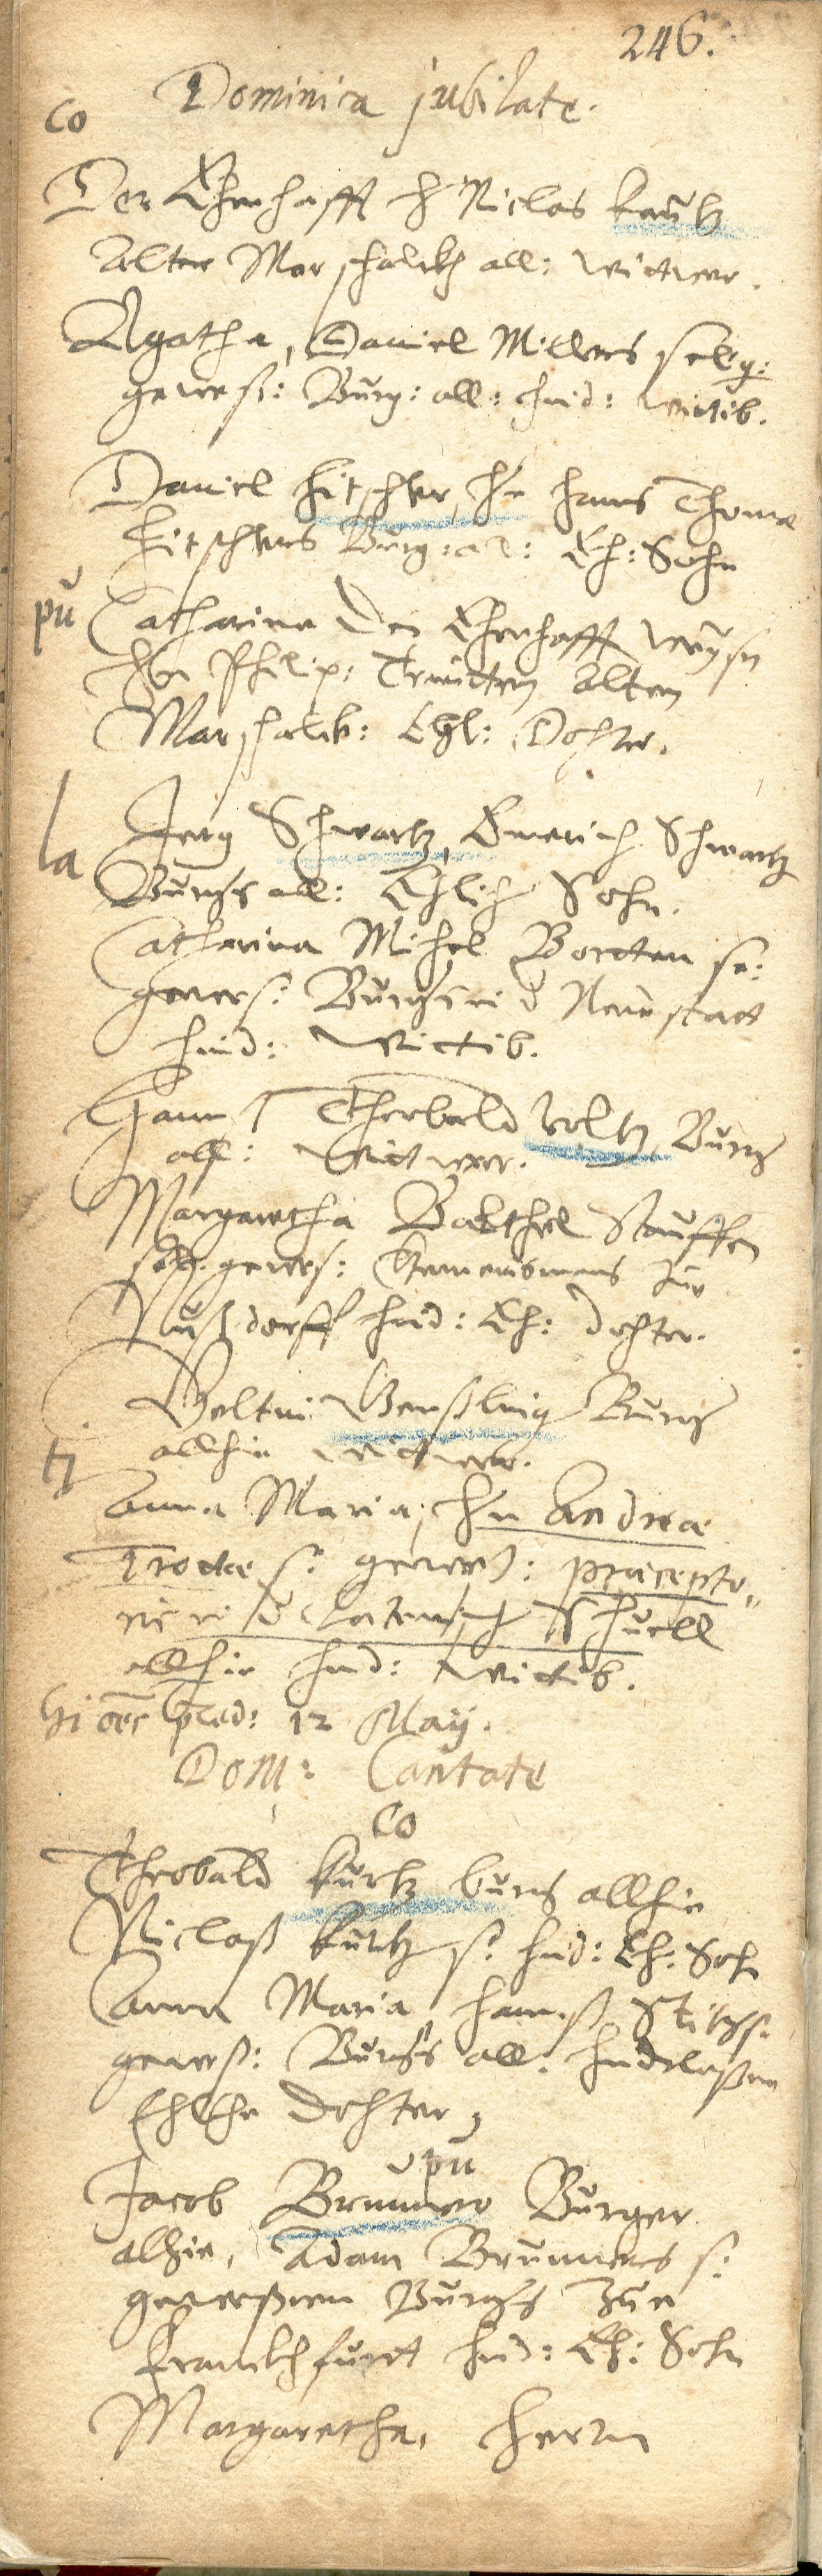 246.
Co Dominica jubilate.
Der Ehrhafft H Niclas Kautz
Alter Marschalckh all: Wittwer.
Agatha, Daniel Millers selig:
geweß: Burg: all: hind: Wittib.
Daniel Hitschler, Hn Hanns Thoma
Hitschlers Burg: al: Eh: Sohn
pu Catharina Des Ehrnhafft
Hn Philip: Alten
Marschalck: Ehl: Dochter.
la Jerg Schwartz, Emerich Schwartz
Burgers all: Ehlich Sohn.
Catharina Michel se:
gewes: Burgers in d Neustatt
hind: Wittib.
Hanns Theobald Voltz, Burg
all: Wittwer.
Margaretha Barthel Stauffen
selig. gewes: Gemeinsmans zur
Nußdorff hind: Eh: Dochter.
ti Veltin Burger
allhie Wittwer.
Anna Maria, Hn Andreæ
s: gewes: præcepto"
ris in d Lateinisch Schuell
allhie hind: Wittib.
Hi oes cop: 12 May.
Dom: Cantate
Co
Theobald Kurtz burg allhie
Niclaß Kurtz s: hind: Eh: Sohn
Anna Maria Hannß
geweß: Burgers all: hinderlaßene
Ehliche Dochter,
pu
Jacob Brunner Burger
alhie, Adam Brunners s:
geweßenen Burgers zue
Franckhfurt hind: Eh: Sohn
Margaretha, Herrn